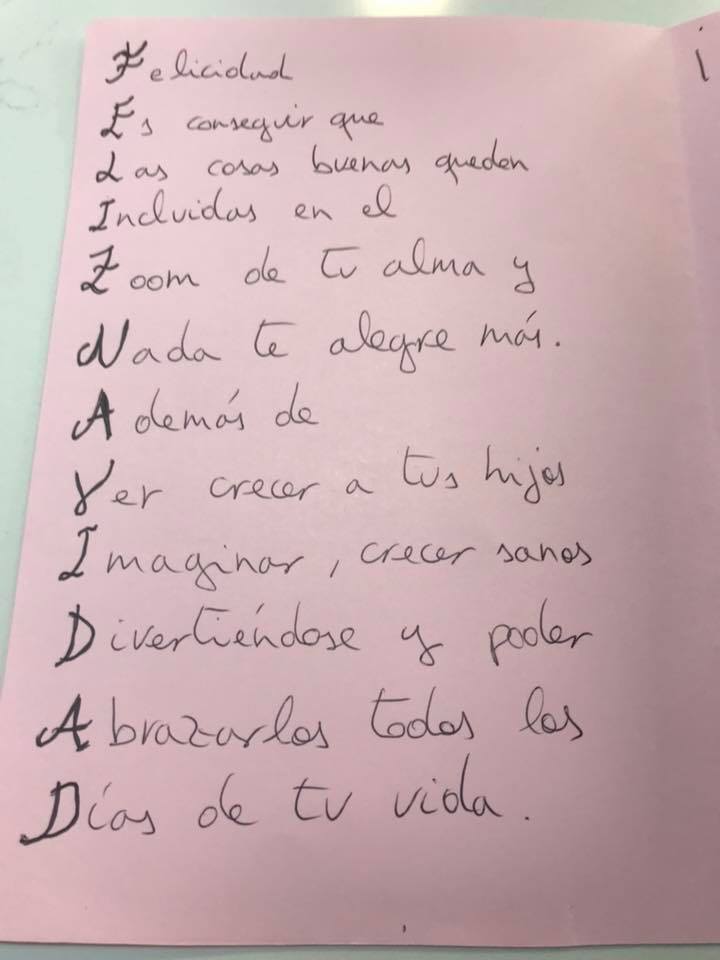 Felicidad
Es conseguir que
Las cosas buenas queden
Incluidas en el
Zoom de tu alma y
Nada te alegre más.
Además de
Ver crecer a tus hijos
Imaginar, crecer sanos
Divertiéndose y poder
Abrazarlos todos los
Días de tu vida.
¡